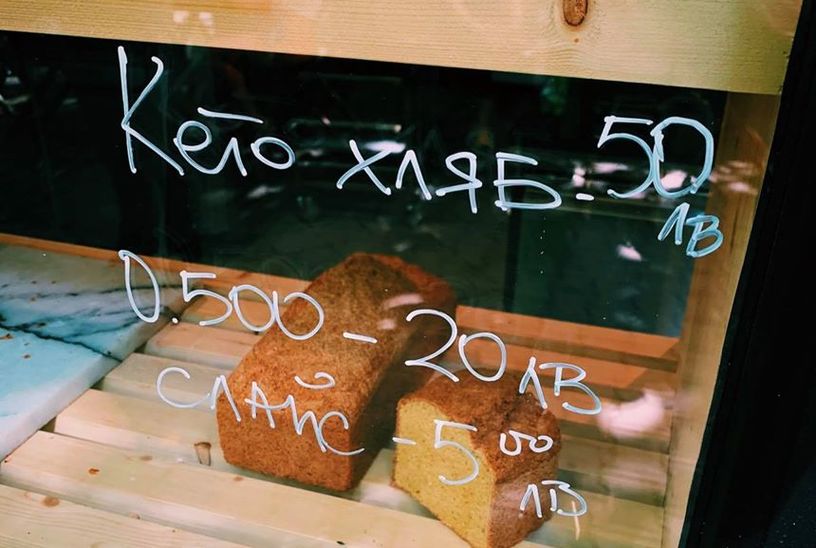 Кето хляб - 50 лв
0.500 - 20 лв
слайс - 5 00 лв